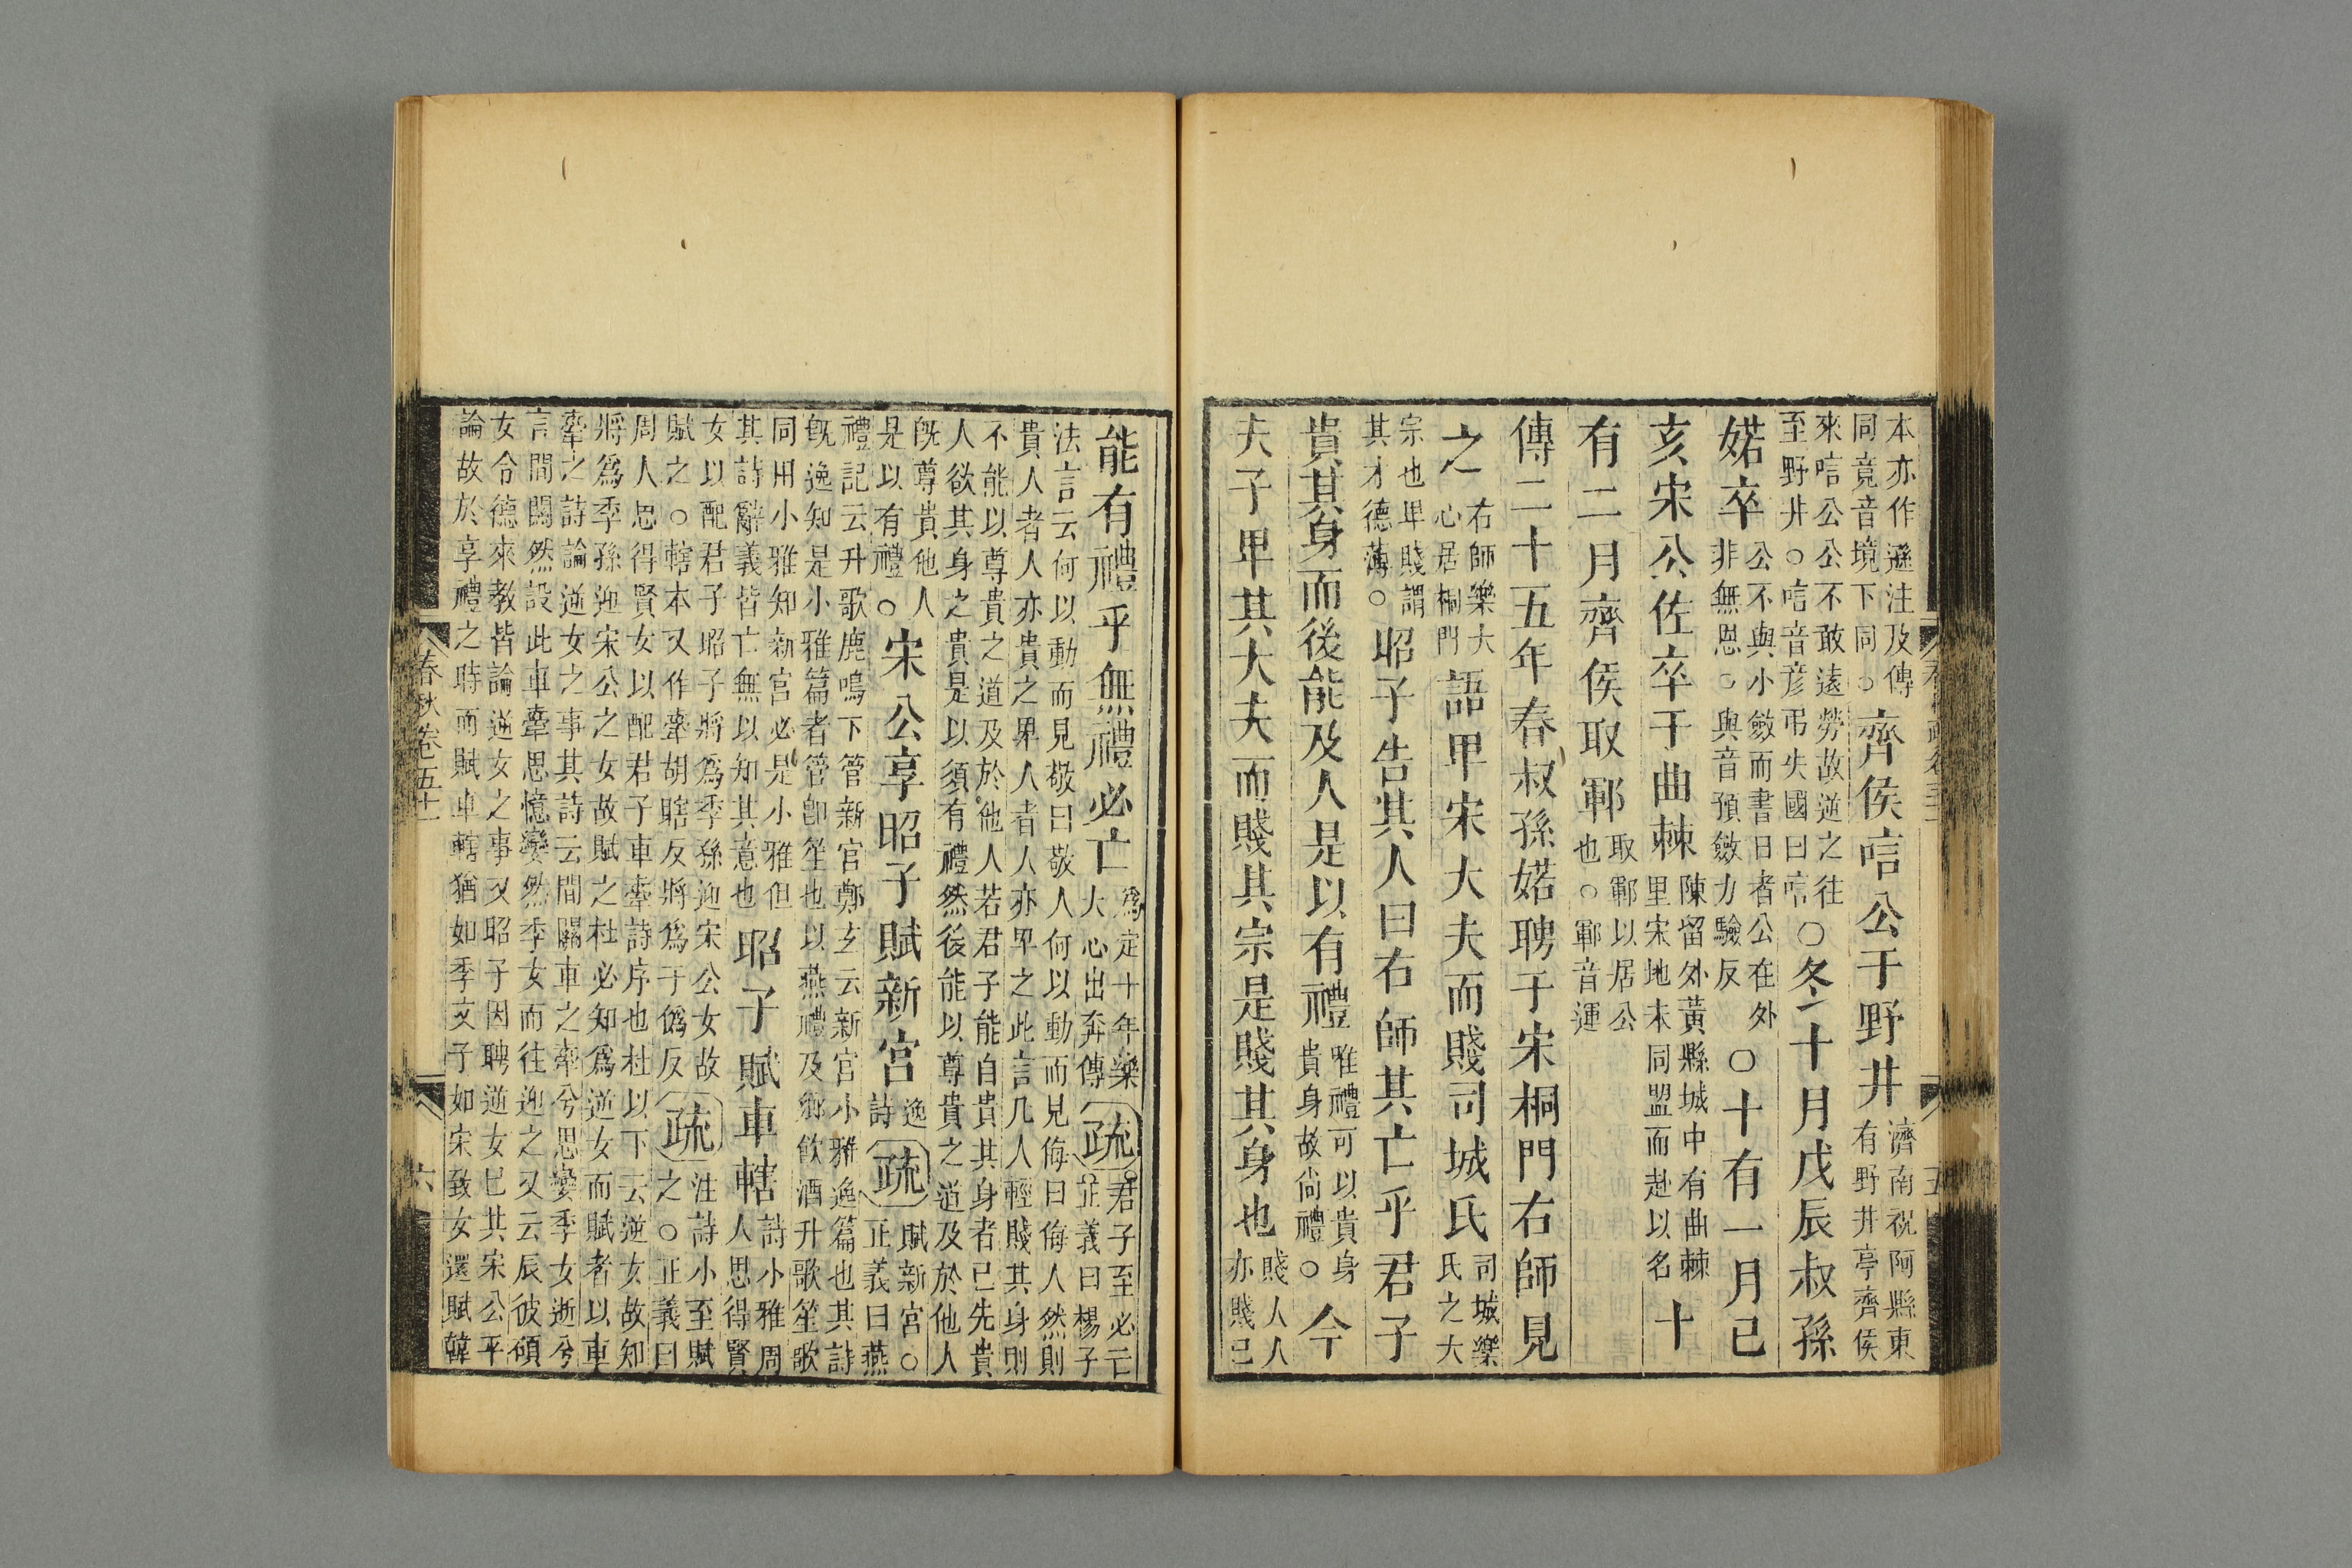 本亦作遜注及傳
同竟音境下同○
齊侯唁公于野井
濟南祝阿縣東
有野井亭齊侯
來唁公公不敢遠勞故逆之往
至野井○唁音彦弔失國曰唁
○冬十月戊辰叔孫
婼卒
公不與小斂而書日者公在外
非無恩○與音預斂力驗反
○十有一月己
亥宋公佐卒于曲棘
陳留外黃縣城中有曲棘
里宋地未同盟而赴以名
十
有二月齊侯取鄆
取鄆以居公
也○鄆音運
傳二十五年春叔孫婼聘于宋桐門右師見
之
右師樂大
心居桐門
語卑宋大夫而賤司城氏
司城樂
氏之大
宗也卑賤謂
其才德薄○
昭子告其人曰右師其亡乎君子
貴其身而後能及人是以有禮
唯禮可以貴身
貴身故尚禮○
今
夫子卑其大夫而賤其宗是賤其身也
賤人人
亦賤己
能有禮乎無禮必亡
爲定十年樂
大心出奔傳
疏
君子至必亡
正義曰楊子
法言云何以動而見敬曰敬人何以動而見侮曰侮人然則
貴人者人亦貴之卑人者人亦卑之此言凡人輕賤其身則
不能以尊貴之道及於他人若君子能自貴其身者已先貴
人欲其身之貴是以須有禮然後能以尊貴之道及於他人
旣尊貴他人
是以有禮○
宋公享昭子賦新宮
逸
詩
疏
賦新宮○
正義曰燕
禮記云升歌鹿鳴下管新宮鄭玄云新宮小雅逸篇也其詩
旣逸知是小雅篇者管卽笙也以燕禮及鄉飲酒升歌笙歌
同用小雅知新宮必是小雅但
其詩辭義皆亡無以知其意也
昭子賦車轄
詩小雅周
人思得賢
女以配君子昭子將爲季孫迎宋公女故
賦之○轄本又作舝胡瞎反將爲于僞反
疏
注詩小至賦
之○正義曰
周人思得賢女以配君子車舝詩序也杜以下云逆女故知
將爲季孫迎宋公之女故賦之杜必知爲逆女而賦者以車
舝之詩論逆女之事其詩云間關車之舝兮思孌季女逝兮
言間關然設此車舝思憶孌然季女而往迎之又云辰彼碩
女令德來教皆論逆女之事又昭子因聘逆女巳其宋公平
論故於享禮之時而賦車轄猶如季文子如宋致女還賦韓
春秋卷五十一
六